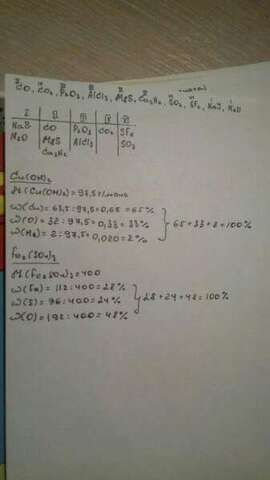 CO, CO₂, P₂O₃, AlCl₃, MgS, Ca₃N₂, SO₂, SF₆, NaI, N₂O
I II III IV VI
CO P₂O₃ CO₂ SF₆
N₂O MgS AlCl₃ SO₂
Ca₃N₂
Cu(OH)₂
M(Cu(OH)₂) = 97,5 г/моль
ω(Cu) = 63,5 : 97,5 = 0,65 = 65%
ω(O) = 32 : 97,5 = 0,33 = 33%
ω(H₂) = 2 : 97,5 = 0,020 = 2%
65 + 33 + 2 = 100%
Fe₂(SO₄)₃
M(Fe₂(SO₄)₃) = 400
ω(Fe) = 112 : 400 = 28%
ω(S) = 96 : 400 = 24%
ω(O) = 192 : 400 = 48%
28 + 24 + 48 = 100%